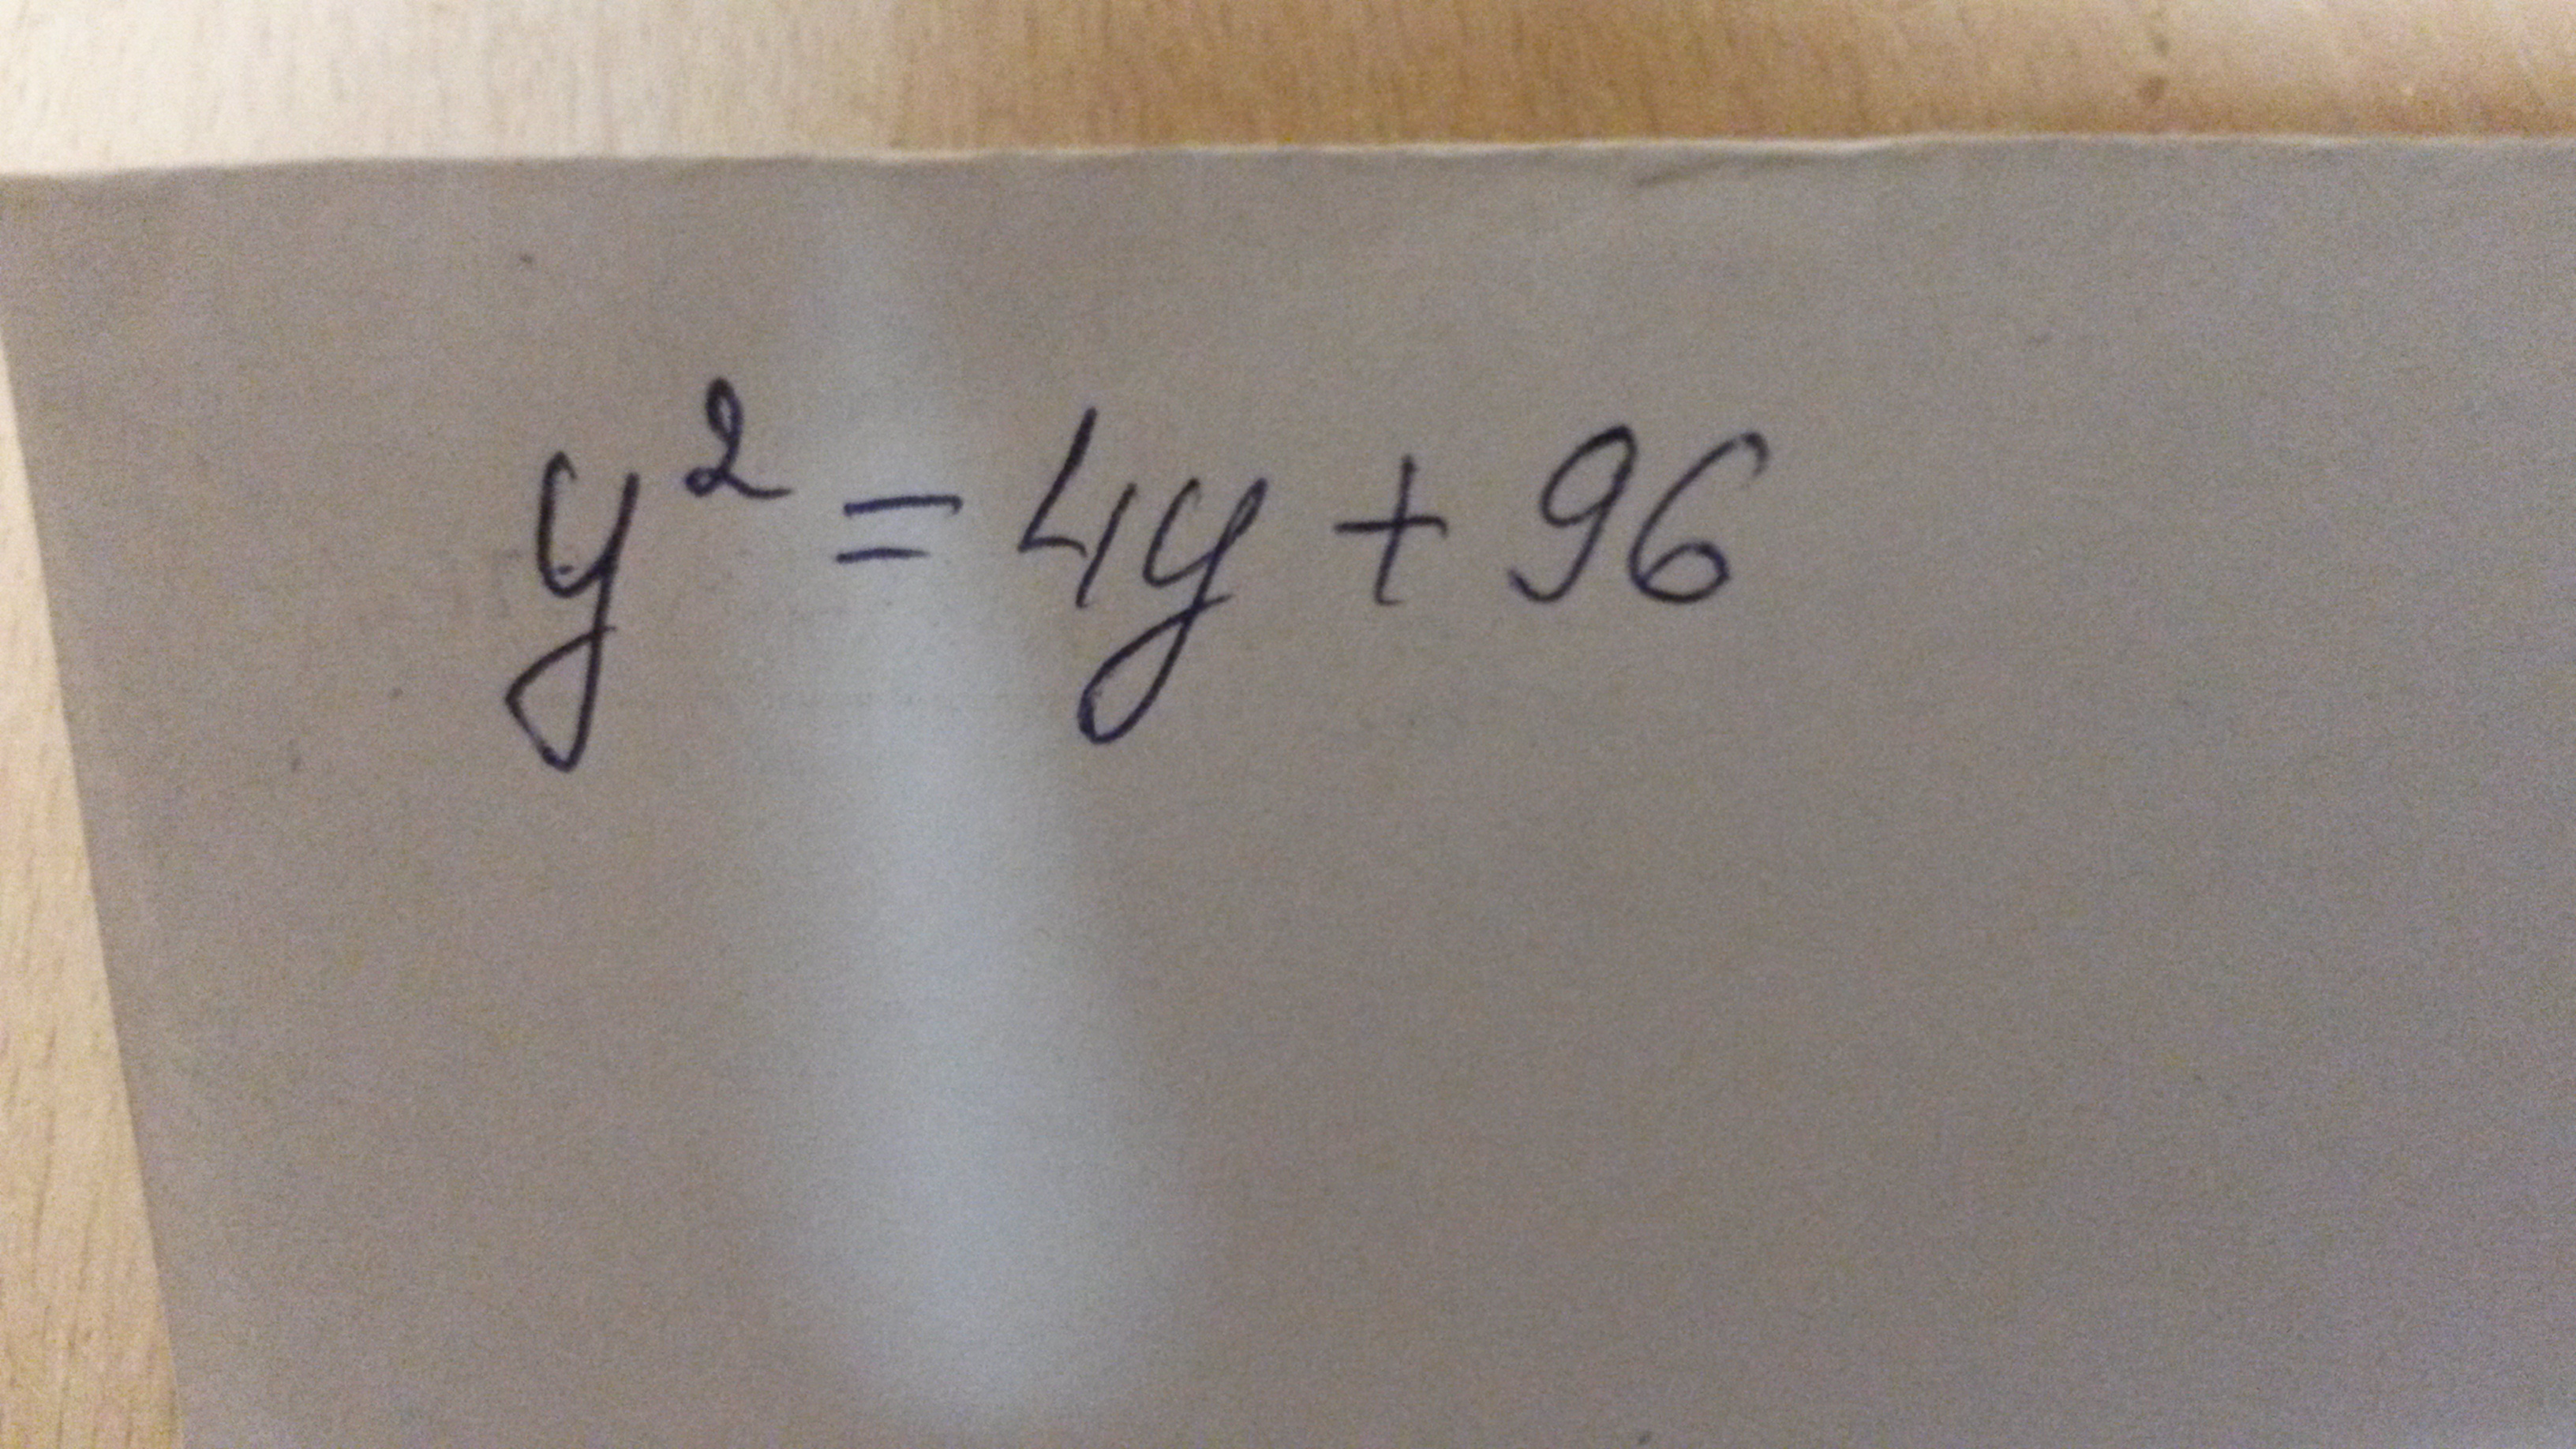 y² = 4y + 96